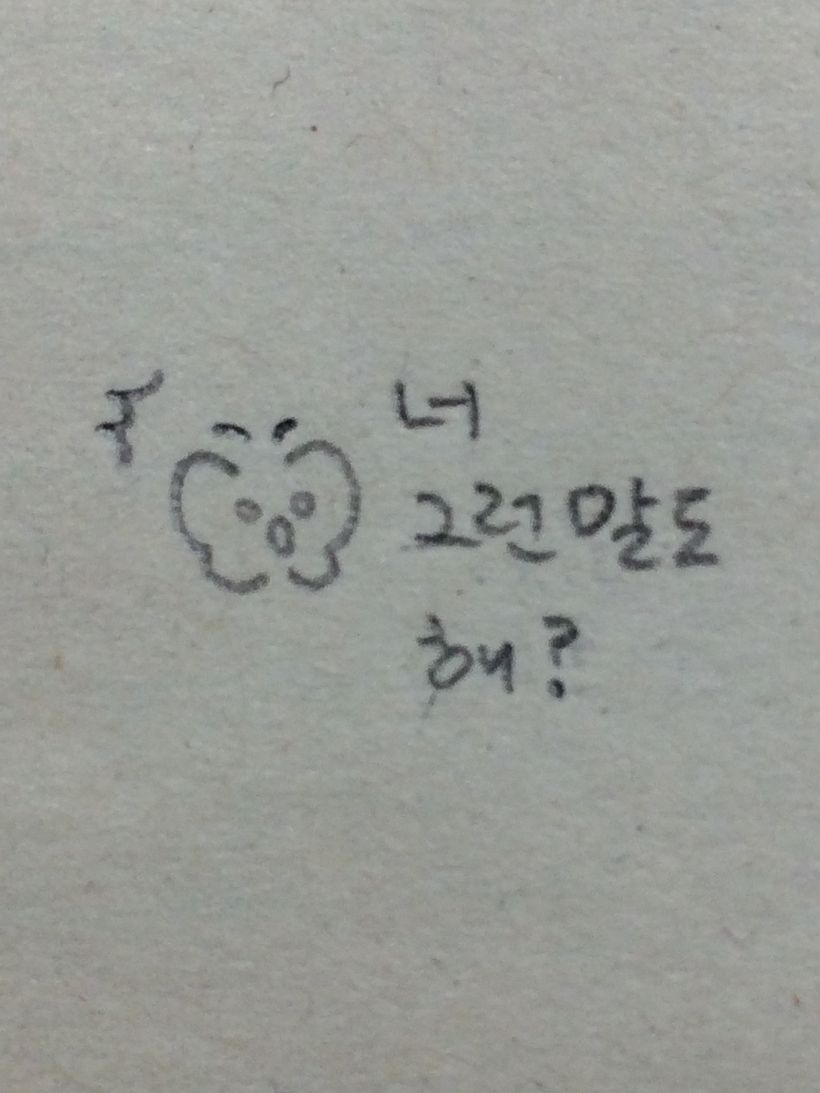 너
그런 말도
해?